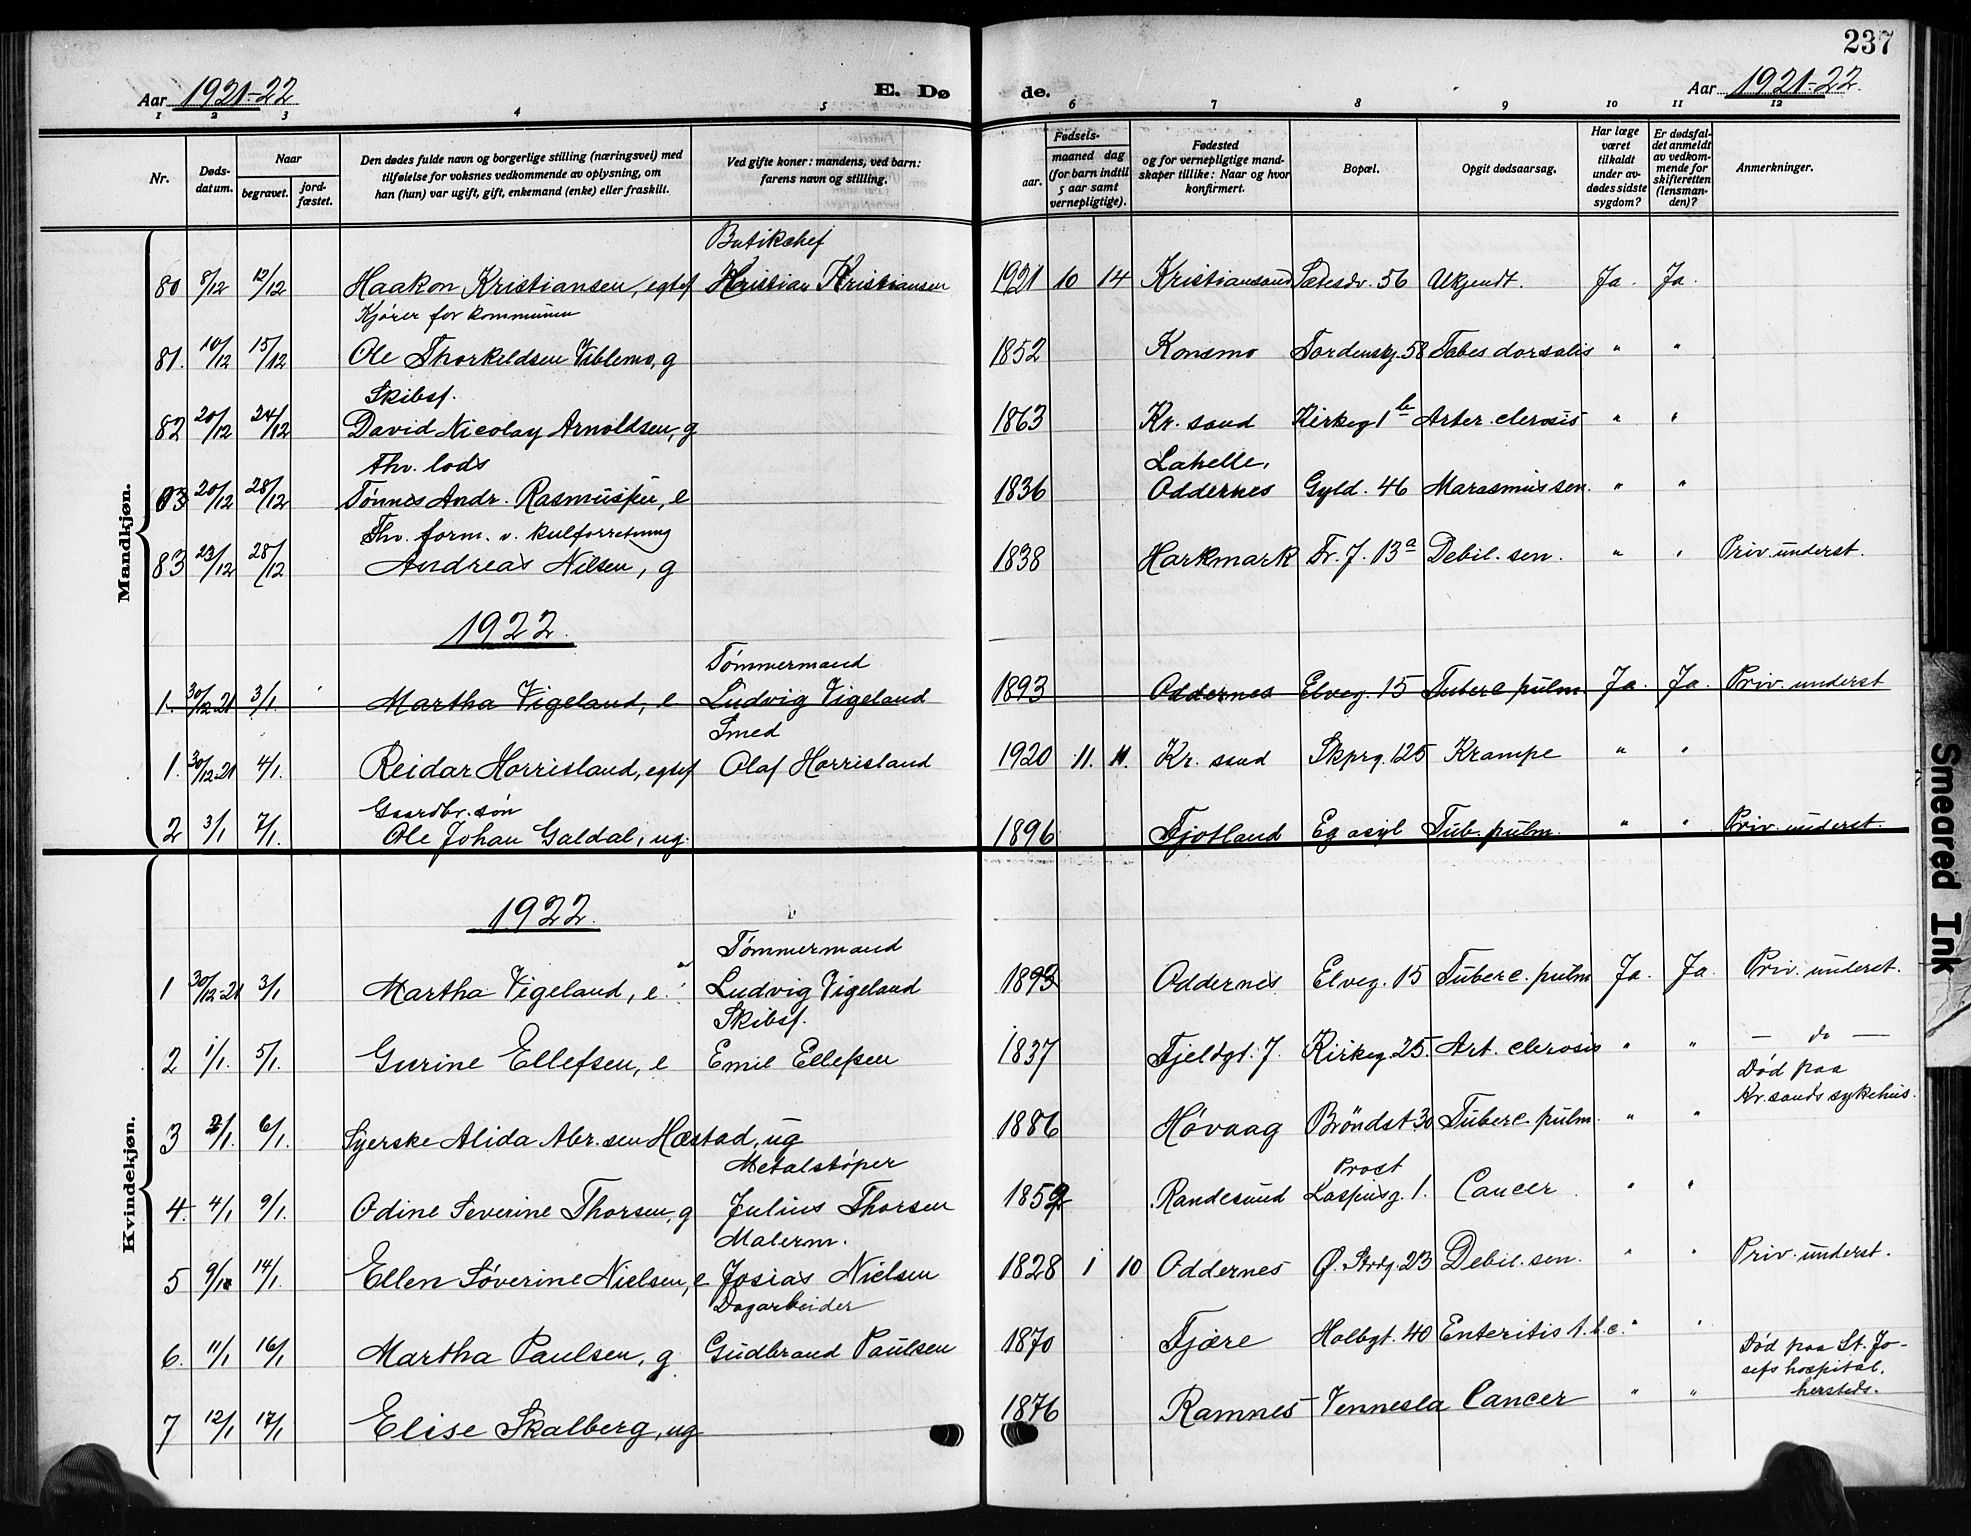 237
Aar 1921-22
E. Dø de.
Aar 1921-22.
1 2 3 4 5 6 7 8 9 10 11 12
Nr.
Døds-
datum.
Naar
begravet.
jord-
fæstet.
Den dødes fulde navn og borgerlige stilling (næringsvei) med
tilføielse for voksnes vedkommende av oplysning, om
han (hun) var ugift, gift, enkemand (enke) eller fraskilt.
Ved gifte koner: mandens, ved barn:
farens navn og stilling.
Fødsels-
aar.
maaned dag
(for barn indtil
5 aar samt
vernepligtige).
Fødested
og for vernepligtige mand-
skaper tillike: Naar og hvor
konfirmert.
Bopæl.
Opgit dødsaarsag.
Har læge
været
tilkaldt
under av-
dødes sidste
sygdom?
Er dødsfal-
det anmeldt
av vedkom-
mende for
skifteretten
(lensman-
den)?
Anmerkninger.
Mandkjøn.
Butikchef
80 8/12 12/12 Haakon Kristiansen, egtef Kristian Kristiansen 1921 10 14 Kristiansand Sætesdv. 56 Ukjendt. Ja. Ja.
Kjører for kommunen
81. 10/12 15/12 Ole Thorkeldsen Viblemo, g 1852 Konsmo Tordenskj. 58 Tabes dorsalis " "
Skibsf.
82 20/12 24/12 David Nicolay Arnoldsen, g 1863 Kr. sand Kirkeg 1 b Arter. clerosis " "
Fhv. lods Lahelle,
83 20/12 28/12 Tønnes Andr. Rasmussen, e 1836 Oddernes Gyld. 46 Marasmus sen. " "
Fhv. form. v. kulforretning
83 23/12 28/12 Andreas Nilsen, g 1838 Harkmark Fr. 7. 13 a Debil. sen. " " Priv. underst.
1922.
Tømmermand
1. 30/12-21 3/1 Martha Vigeland, e Ludvig Vigeland 1893 Oddernes Elveg. 15 Tuberc pulm. Ja. Ja. Priv. underst
Smed
1. 30/12-21 4/1. Reidar Horrisland, egtef Olaf Horrisland 1920 11. 11. Kr. sand Skprg. 125 Krampe " "
Gaardbr. søn
2 3/1 7/1. Ole Johan Galdal, ug. 1896 Fjotland Eg asyl Tub. pulm. " " Priv. underst.
Kvindekjøn.
1922.
Tømmermand
1 30/12-21 3/1 Martha Vigeland, e. Ludvig Vigeland 1893 Oddernes Elveg. 15 Tuberc. pulm Ja. Ja. Priv. underst.
Skibsf.
2 1/1. 5/1. Gurine Ellefsen, e Emil Ellefsen 1837 Fjeldgt. 7. Kirkeg. 25. Art. clerosis " " — do —
Død paa
Kr.sands sykehus.
3 2/1. 6/1. Syerske Alida Abr.sen Hæstad, ug 1886 Høvaag Brøndst 30 Tuberc pulm. " "
Metalstøper Prost
4. 4/1 9/1. Odine Severine Thorsen, g Julius Thorsen 1859 Randesund Laspiusg. 1. Cancer " "
Malerm.
5 9/1 14/1. Ellen Søverine Nielsen, e Josias Nielsen 1828 1 10 Oddernes Ø. Strdg. 23 Debil. sen. " " Priv. underst.
Dagarbeider
6. 11/1 16/1 Martha Paulsen, g Gudbrand Paulsen 1870 Fjære Holbgt. 40 Enteritis t.b.c. " "
Død paa St. Jo-
sefs hospital,
hersteds.
7 12/1 17/1 Elise Skalberg, ug 1876 Ramnes Vennesla Cancer " "
Smeared Ink